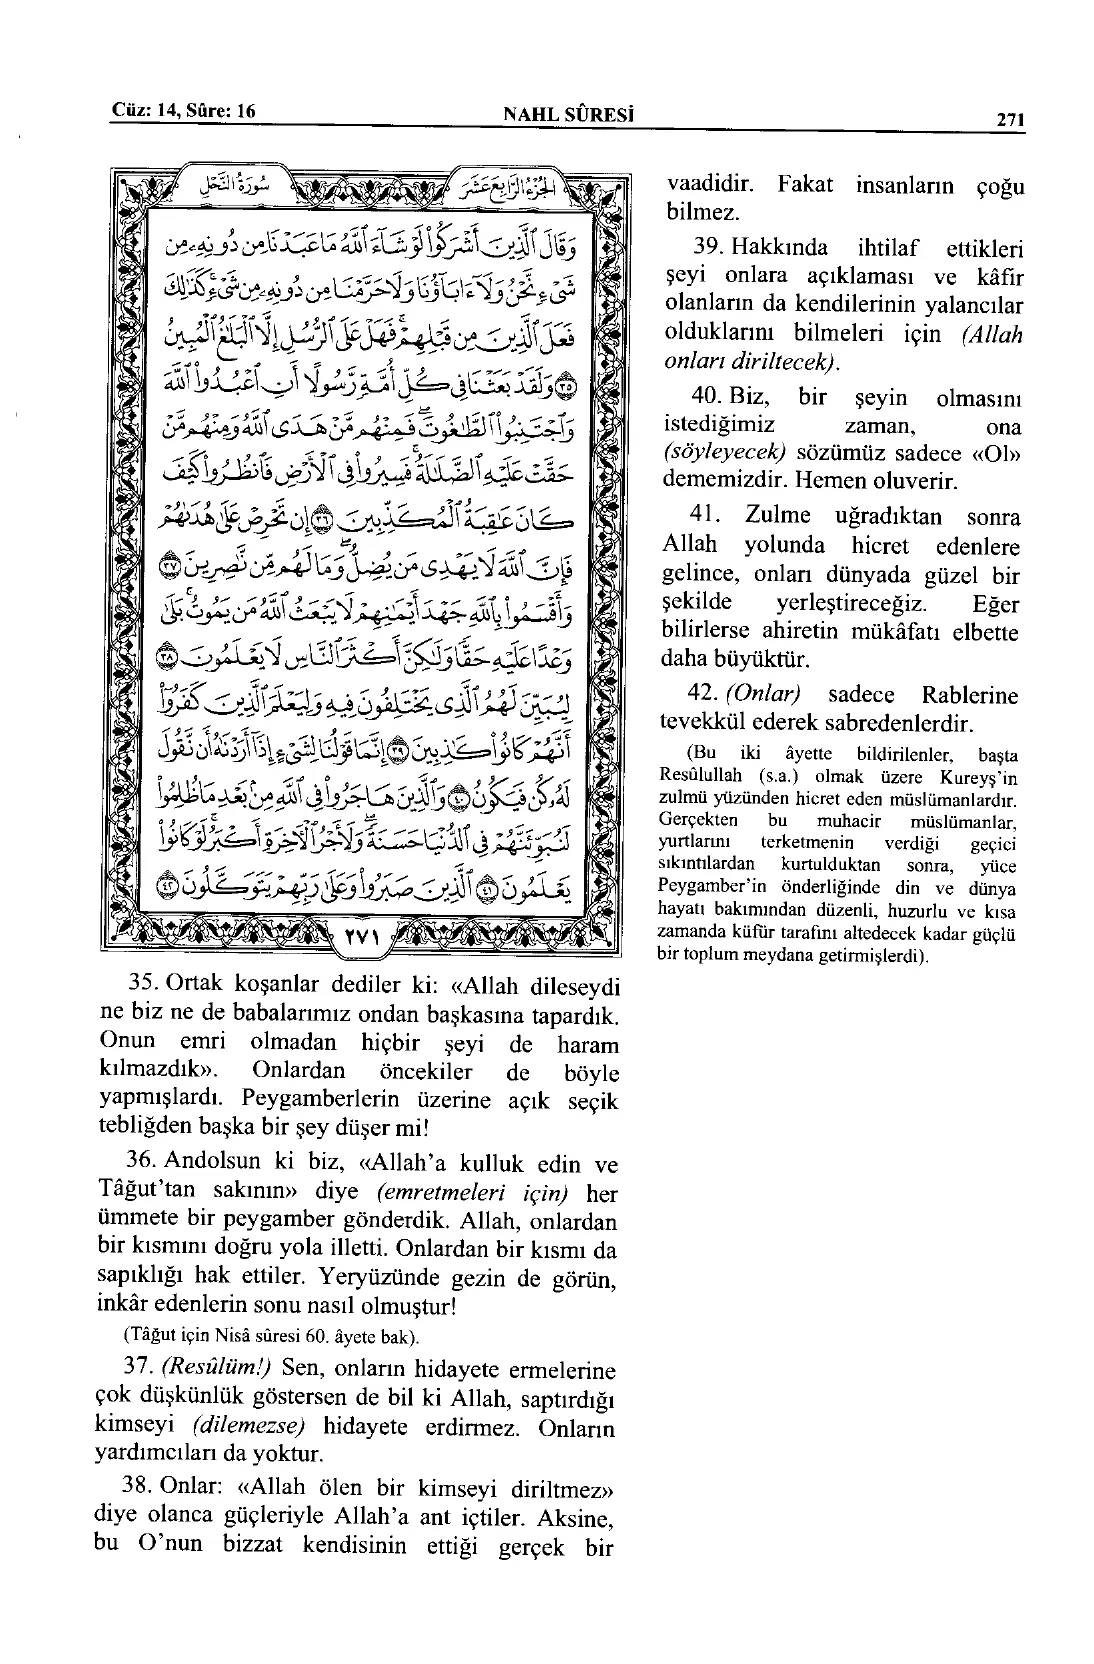 Cüz: 14, Sûre: 16
NAHL SÛRESİ
271
سُورَةُ النَّحْلِ
الجُزْءُ الرَّابِعَ عَشَرَ
وَقَالَ الَّذ۪ينَ اَشْرَكُوا لَوْ شَٓاءَ اللّٰهُ مَا عَبَدْنَا مِنْ دُونِه۪ مِنْ
شَيْءٍ نَحْنُ وَلَٓا اٰبَٓاؤُ۬نَا وَلَا حَرَّمْنَا مِنْ دُونِه۪ مِنْ شَيْءٍ كَذٰلِكَ
فَعَلَ الَّذ۪ينَ مِنْ قَبْلِهِمْ فَهَلْ عَلَى الرُّسُلِ اِلَّا الْبَلَاغُ الْمُب۪ينُ
﴿٣٥﴾ وَلَقَدْ بَعَثْنَا ف۪ي كُلِّ اُمَّةٍ رَسُولًا اَنِ اعْبُدُوا اللّٰهَ
وَاجْتَنِبُوا الطَّاغُوتَ فَمِنْهُمْ مَنْ هَدَى اللّٰهُ وَمِنْهُمْ مَنْ
حَقَّتْ عَلَيْهِ الضَّلَالَةُ فَس۪يرُوا فِي الْاَرْضِ فَانْظُرُوا كَيْفَ
كَانَ عَاقِبَةُ الْمُكَذِّب۪ينَ ﴿٣٦﴾ اِنْ تَحْرِصْ عَلٰى هُدٰيهُمْ
فَاِنَّ اللّٰهَ لَا يَهْد۪ي مَنْ يُضِلُّ وَمَا لَهُمْ مِنْ نَاصِر۪ينَ ﴿٣٧﴾
وَاَقْسَمُوا بِاللّٰهِ جَهْدَ اَيْمَانِهِمْ لَا يَبْعَثُ اللّٰهُ مَنْ يَمُوتُ بَلٰى
وَعْدًا عَلَيْهِ حَقًّا وَلٰكِنَّ اَكْثَرَ النَّاسِ لَا يَعْلَمُونَ ﴿٣٨﴾
لِيُبَيِّنَ لَهُمُ الَّذ۪ي يَخْتَلِفُونَ ف۪يهِ وَلِيَعْلَمَ الَّذ۪ينَ كَفَرُوا
اَنَّهُمْ كَانُوا كَاذِب۪ينَ ﴿٣٩﴾ اِنَّمَا قَوْلُنَا لِشَيْءٍ اِذَٓا اَرَدْنَاهُ اَنْ نَقُولَ
لَهُ كُنْ فَيَكُونُ ﴿٤٠﴾ وَالَّذ۪ينَ هَاجَرُوا فِي اللّٰهِ مِنْ بَعْدِ مَا ظُلِمُوا
لَنُبَوِّئَنَّهُمْ فِي الدُّنْيَا حَسَنَةً وَلَاَجْرُ الْاٰخِرَةِ اَكْبَرُ لَوْ كَانُوا
يَعْلَمُونَ ﴿٤١﴾ الَّذ۪ينَ صَبَرُوا وَعَلٰى رَبِّهِمْ يَتَوَكَّلُونَ ﴿٤٢﴾
٢٧١
35. Ortak koşanlar dediler ki: «Allah dileseydi
ne biz ne de babalarımız ondan başkasına tapardık.
Onun emri olmadan hiçbir şeyi de haram
kılmazdık». Onlardan öncekiler de böyle
yapmışlardı. Peygamberlerin üzerine açık seçik
tebliğden başka bir şey düşer mi!
36. Andolsun ki biz, «Allah'a kulluk edin ve
Tâğut'tan sakının» diye (emretmeleri için) her
ümmete bir peygamber gönderdik. Allah, onlardan
bir kısmını doğru yola illetti. Onlardan bir kısmı da
sapıklığı hak ettiler. Yeryüzünde gezin de görün,
inkâr edenlerin sonu nasıl olmuştur!
(Tâğut için Nisâ sûresi 60. âyete bak).
37. (Resûlüm!) Sen, onların hidayete ermelerine
çok düşkünlük göstersen de bil ki Allah, saptırdığı
kimseyi (dilemezse) hidayete erdirmez. Onların
yardımcıları da yoktur.
38. Onlar: «Allah ölen bir kimseyi diriltmez»
diye olanca güçleriyle Allah'a ant içtiler. Aksine,
bu O'nun bizzat kendisinin ettiği gerçek bir
vaadidir. Fakat insanların çoğu
bilmez.
39. Hakkında ihtilaf ettikleri
şeyi onlara açıklaması ve kâfir
olanların da kendilerinin yalancılar
olduklarını bilmeleri için (Allah
onları diriltecek).
40. Biz, bir şeyin olmasını
istediğimiz zaman, ona
(söyleyecek) sözümüz sadece «Ol»
dememizdir. Hemen oluverir.
41. Zulme uğradıktan sonra
Allah yolunda hicret edenlere
gelince, onları dünyada güzel bir
şekilde yerleştireceğiz. Eğer
bilirlerse ahiretin mükâfatı elbette
daha büyüktür.
42. (Onlar) sadece Rablerine
tevekkül ederek sabredenlerdir.
(Bu iki âyette bildirilenler, başta
Resûlullah (s.a.) olmak üzere Kureyş'in
zulmü yüzünden hicret eden müslümanlardır.
Gerçekten bu muhacir müslümanlar,
yurtlarını terketmenin verdiği geçici
sıkıntılardan kurtulduktan sonra, yüce
Peygamber'in önderliğinde din ve dünya
hayatı bakımından düzenli, huzurlu ve kısa
zamanda küfür tarafını altedecek kadar güçlü
bir toplum meydana getirmişlerdi).